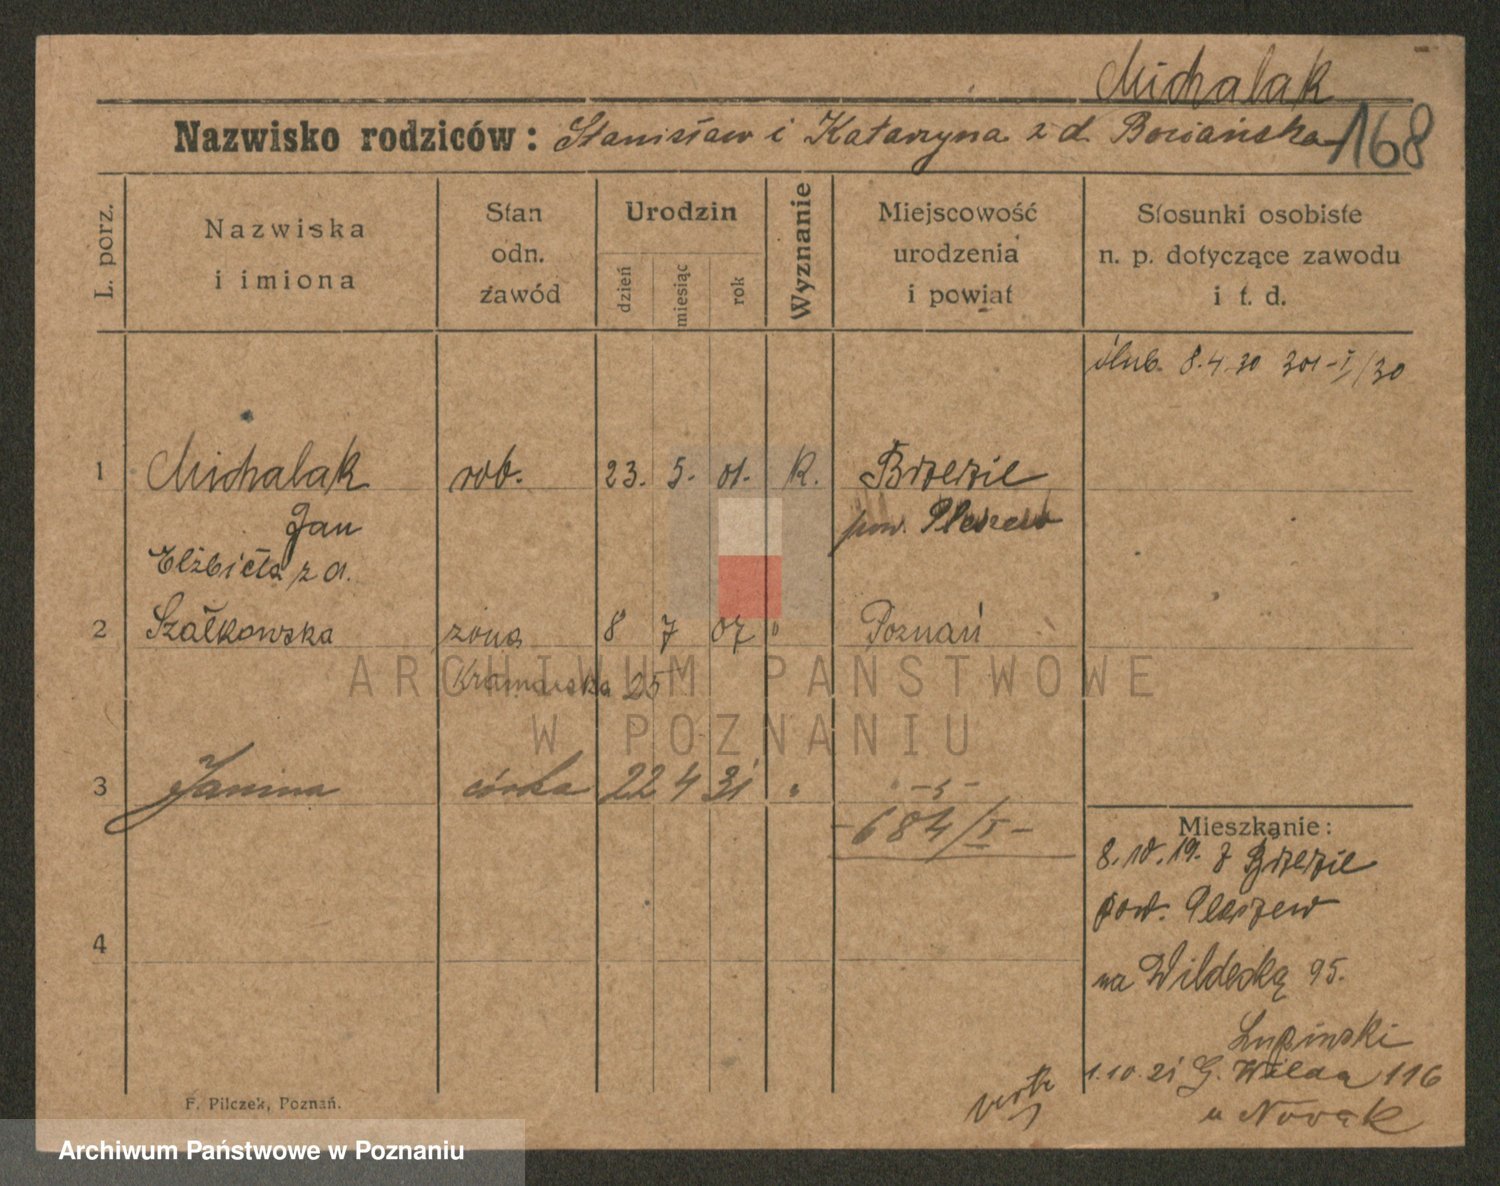 Michalak
Nazwisko rodziców: Stanisław i Katarzyna z d. Bociańska 168
L. porz.
Nazwiska
i imiona
Stan
odn.
zawód
Urodzin
dzień
miesiąc
rok
Wyznanie
Miejscowość
urodzenia
i powiat
Stosunki osobiste
n. p. dotyczące zawodu
i t. d.
ślub. 8.4.30 301-I/30
1 Michalak rob. 23. 5. 01. K. Brzezie
Jan pow. Pleszew
Elżbieta z d.
2 Szałkowska żona 8 7 07 " Poznań
Kramarska 25
3 Janina córka 22 4 31 " -"-
-684/I-
4
Mieszkanie:
8. 10. 19. z Brzezie
pow. Pleszew
na Wildecką 95.
Lupinski
1.10.21 G. Wilda 116
u Nowak
verte
F. Pilczek, Poznań.
ARCHIWUM PAŃSTWOWE
W POZNANIU
Archiwum Państwowe w Poznaniu